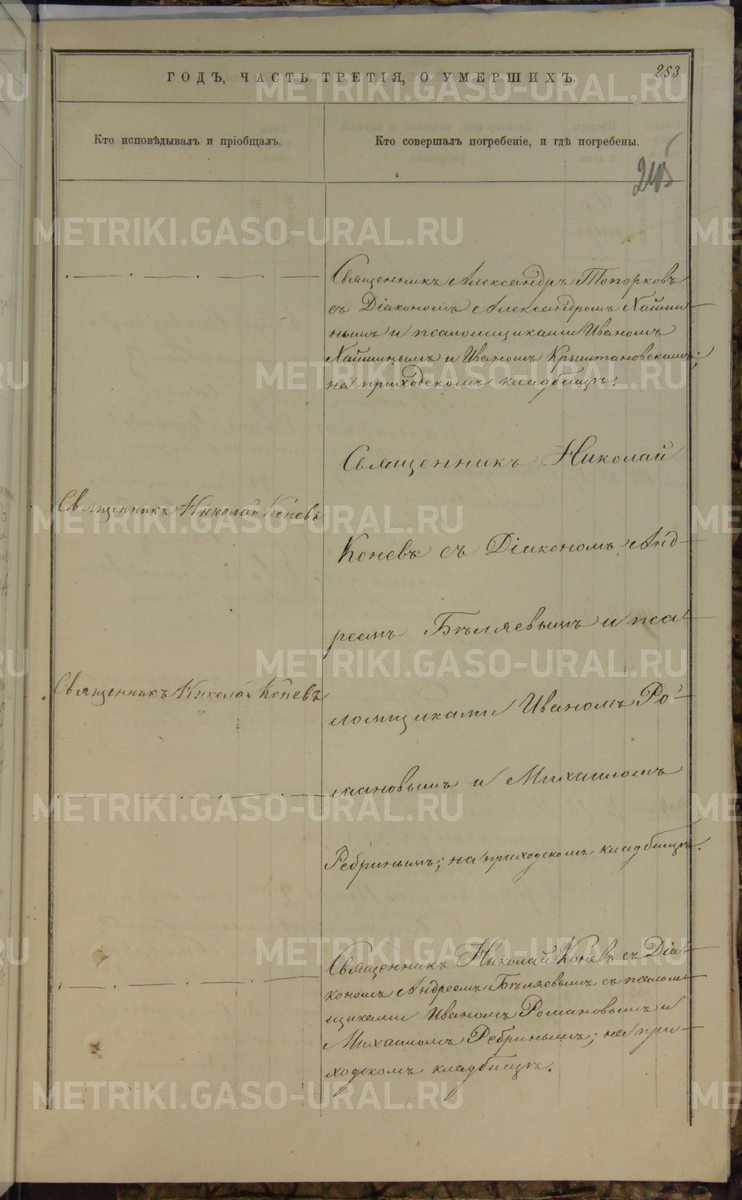 253
ГОДЪ, ЧАСТЬ ТРЕТІЯ, О УМЕРШИХЪ.
Кто исповѣдывалъ и пріобщалъ.
Кто совершалъ погребеніе, и гдѣ погребены.
Священникъ Александръ Топорковъ
съ Діакономъ Александромъ
нымъ и псаломщиками Иваномъ
и Иваномъ Крыштановскимъ;
на приходскомъ кладбищѣ.
Священникъ Николай
Священникъ Николай Коневъ
Коневъ съ Діакономъ Анд-
реемъ Бѣляевымъ и пса-
Священникъ Николай Коневъ
ломщиками Иваномъ Ро-
мановымъ и Михаиломъ
Ребринымъ; на приходскомъ кладбищѣ.
Священникъ Николай Коневъ съ Діа-
кономъ Андреемъ Бѣляевымъ съ псалом-
щиками Иваномъ Романовымъ и
Михаиломъ Ребринымъ; на при-
ходскомъ кладбищѣ.
METRIKI.GASO-URAL.RU